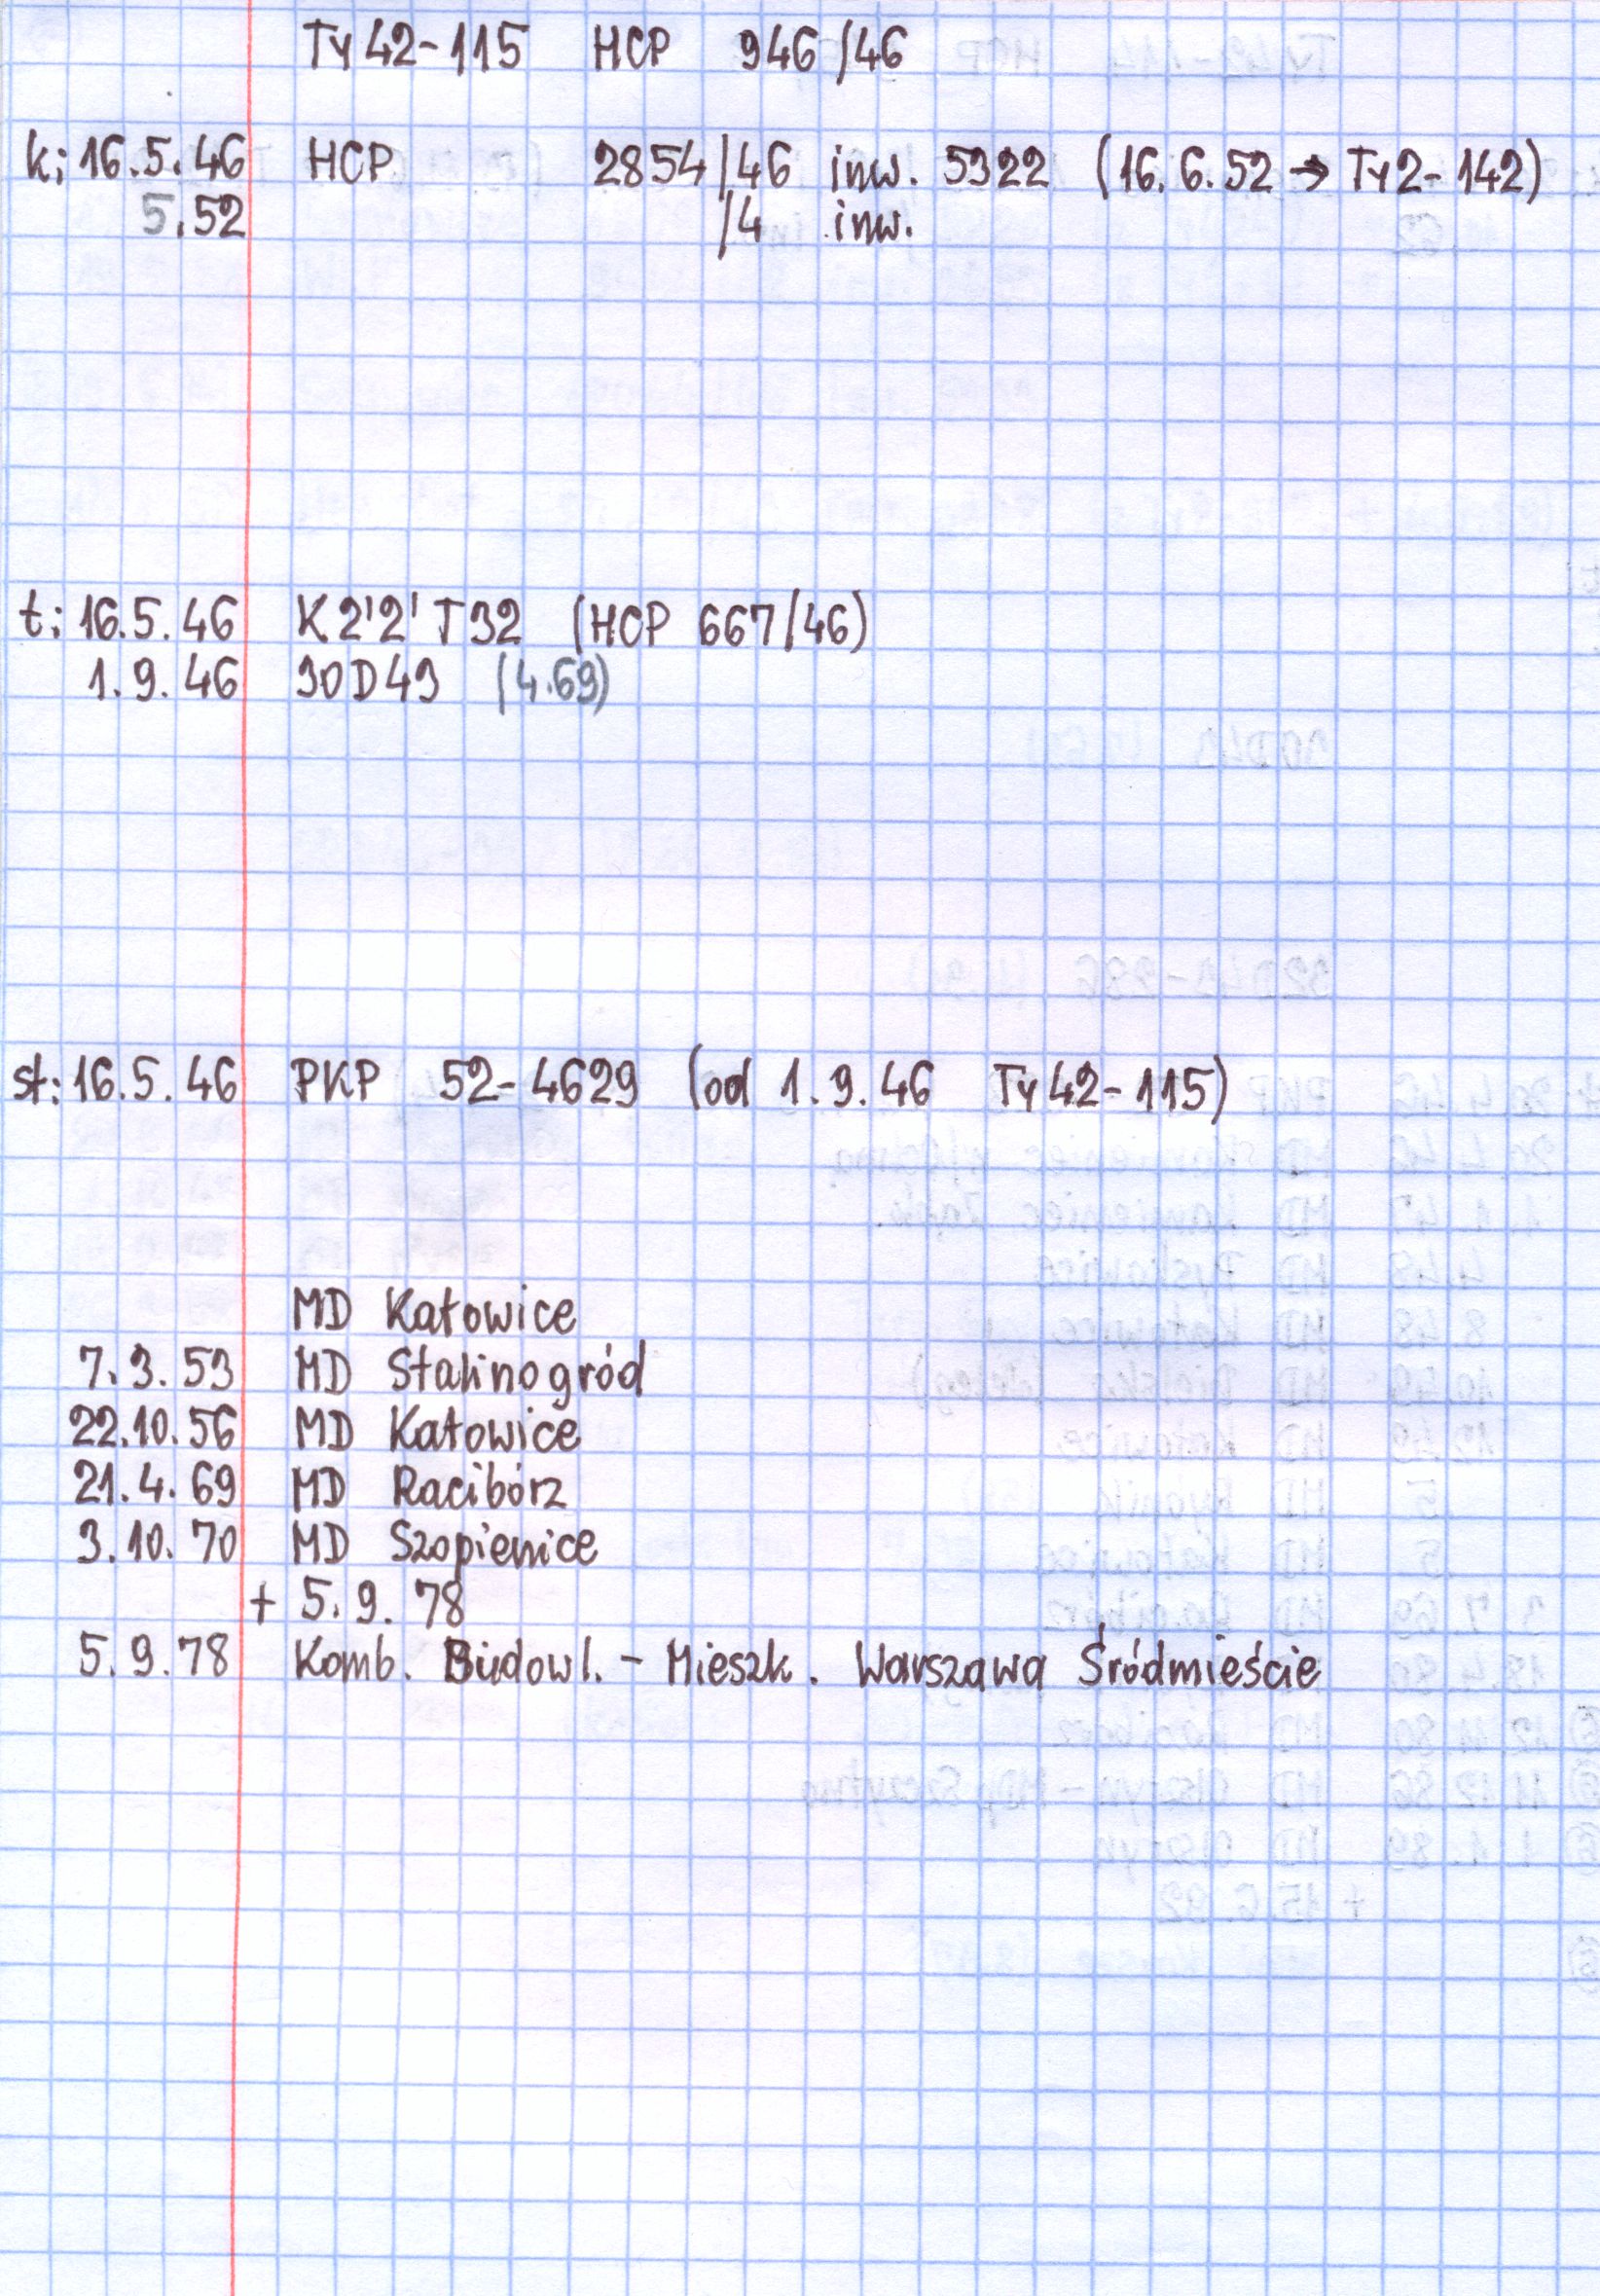 Ty42-115 HCP 946/46
k: 16.5.46 HCP 2854/46 inw. 5322 (16.6.52 → Ty2-142)
5.52 /4 inw.
t: 16.5.46 K 2'2' T32 (HCP 667/46)
1.9.46 30D43 (4.69)
st: 16.5.46 PKP 52-4629 (od 1.9.46 Ty42-115)
MD Katowice
7.3.53 MD Stalinogród
22.10.56 MD Katowice
21.4.69 MD Racibórz
3.10.70 MD Szopienice
+ 5.9.78
5.9.78 Komb. Budowl. - Mieszk. Warszawa Śródmieście